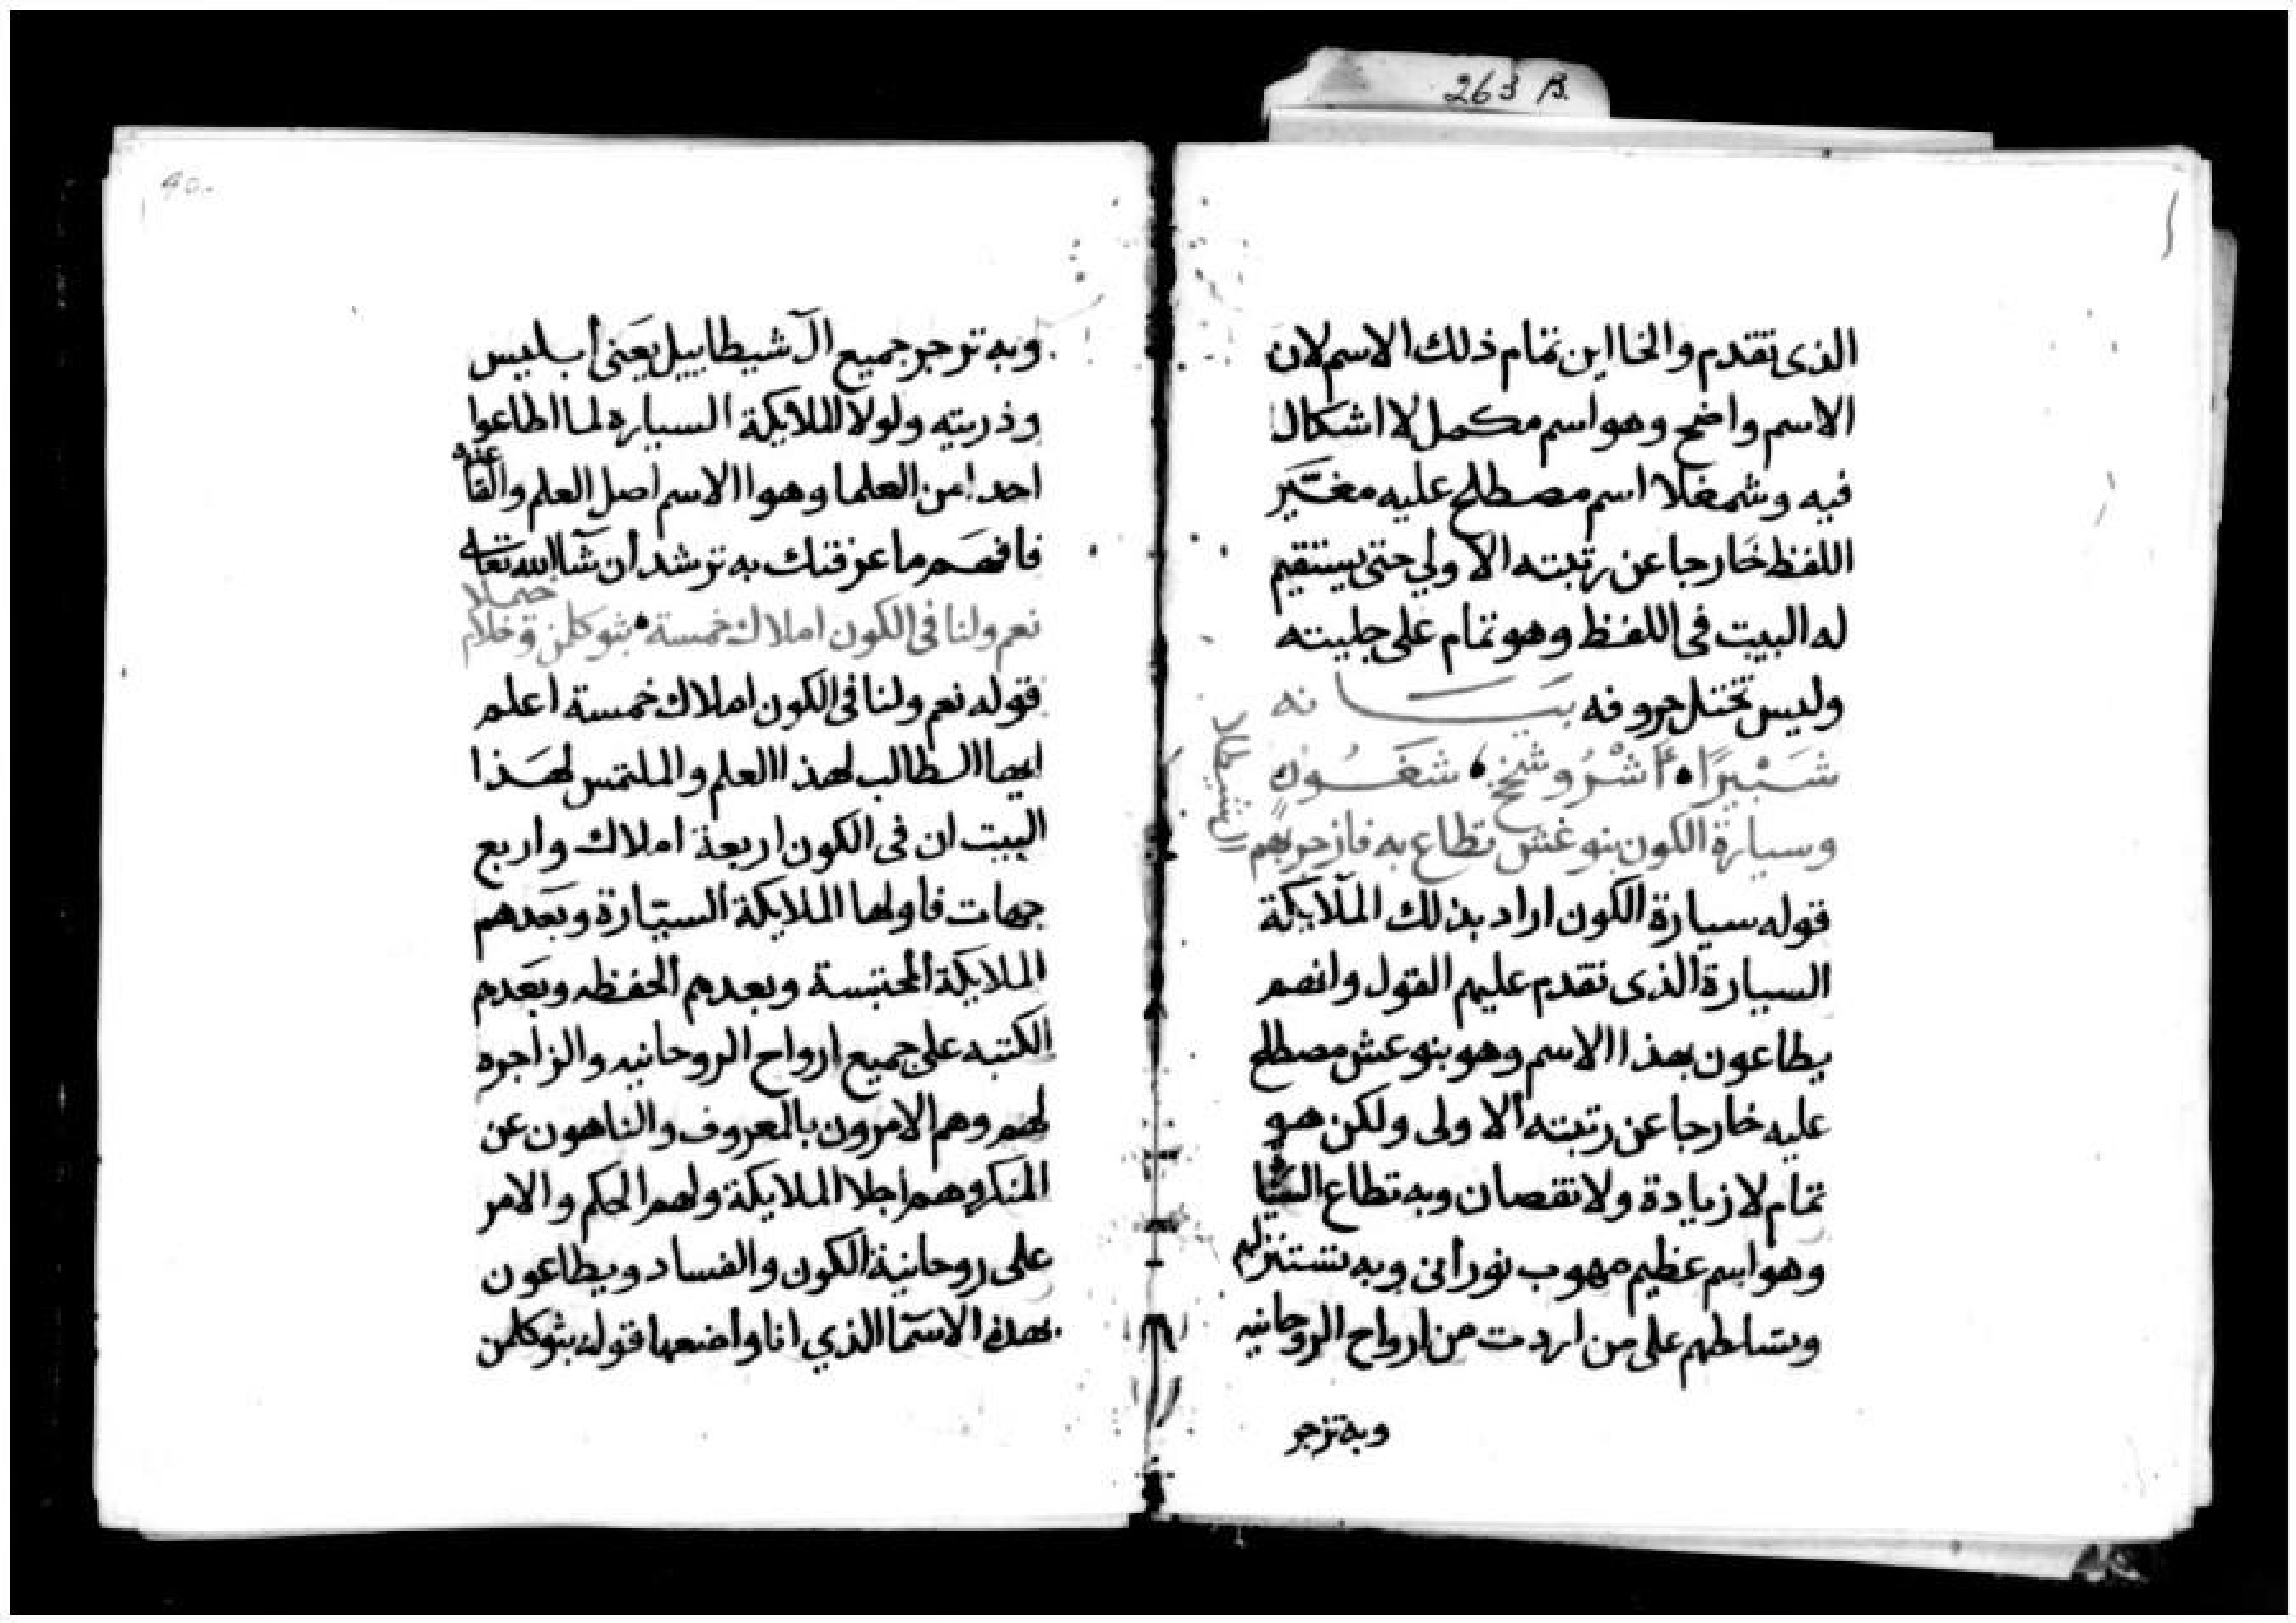 263 B.
الذى تقدم والخا اين تمام ذلك الاسم لان
الاسم واضح وهو اسم مكمل لا اشكال
فيه وشمغلا اسم مصطلح عليه مغتير
اللفظ خارجا عن رتبته الاولي حتى يستقيم
له البيت فى اللفظ وهو تمام على جليته
وليس تختل حروفه بيانه
شبيرا أشروشخ شغسون
وسيارة الكون بنوغش تطاع به فازجر بهم
قوله سيارة الكون اراد بذلك الملايكة
السيارة الذى تقدم عليهم القول وانهم
يطاعون بهذا الاسم وهو بنوعش مصطلح
عليه خارجا عن رتبته الاولى ولكن هو
تمام لا زيادة ولا نقصان وبه تطاع
وهو اسم عظيم مهوب نورانى وبه تستنزلهم
وتسلطهم على من اردت من ارواح الروحانيه
وبه تزجر
40.
وبه تزجر جميع آل شيطاييل يعنى أبليس
وذريته ولولا الملايكة السياره لما اطاعوا
احدا من العلما وهو الاسم اصل العلم والقا عنه
فافهم ما عرفتك به ترشد ان شا الله تعالى
نعم ولنا فى الكون املاك خمسة بثوكلن
قوله نعم ولنا فى الكون املاك خمسة اعلم
ايها الطالب لهذا العلم والملتمس لهذا
البيت ان فى الكون اربعة املاك واربع
جهات فاولها الملايكة السيارة وبعدهم
الملايكة المحتبسة وبعدهم الحفظه وبعدهم
الكتبه على جميع ارواح الروحانيه والزاجره
لهم وهم الامرون بالمعروف والناهون عن
المنكر وهم اجلا الملايكة ولهم الحكم والامر
على روحانية الكون والفساد ويطاعون
بهذه الاسما الذي انا واضعها قوله بثوكلن